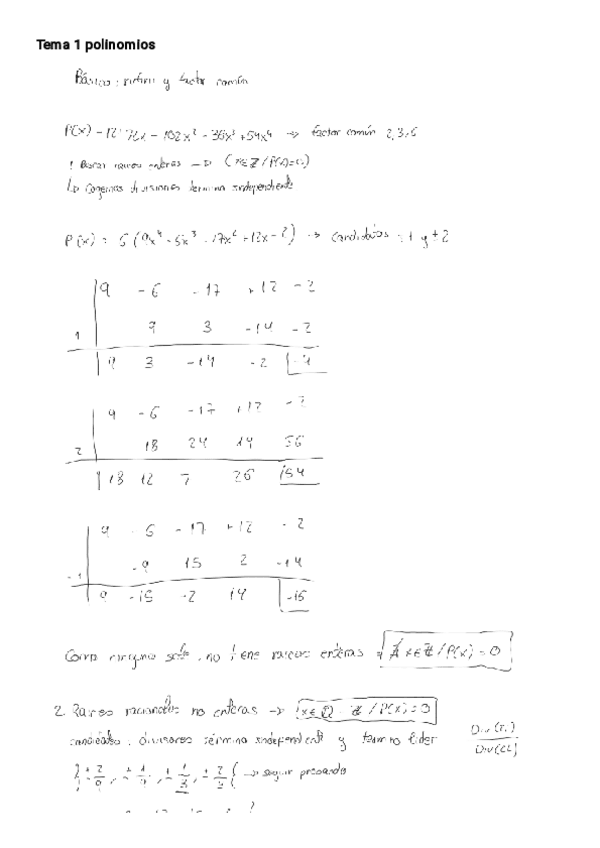 Tema 1 polinomios
Básico: y factor común
P(x) = 72x - 102x² - 36x³ + 54x⁴ → factor común 2,3,6
1 Buscar raíces enteras → (x∈Z / P(x)=0)
↳ Cogemos divisores término independiente
P(x) = 6 (9x⁴ - 6x³ - 17x² + 12x - 2) → candidatos ±1 y ±2
9 -6 -17 +12 -2
1 9 3 -14 -2
9 3 -14 -2 -4
9 -6 -17 +12 -2
2 18 24 14 56
18 12 7 26 154
9 -6 -17 +12 -2
-1 -9 15 2 -14
9 -15 -2 14 -16
Como ninguno, no tiene raíces enteras ∄ x∈Z / P(x) = 0
2. Raíces racionales no enteras → x∈Q - Z / P(x) = 0
candidatos: divisores término independiente y término líder Div(T.I.) / Div(CL)
± 2/9, ± 1/9, ± 1/3, ± 2/3 → seguir probando